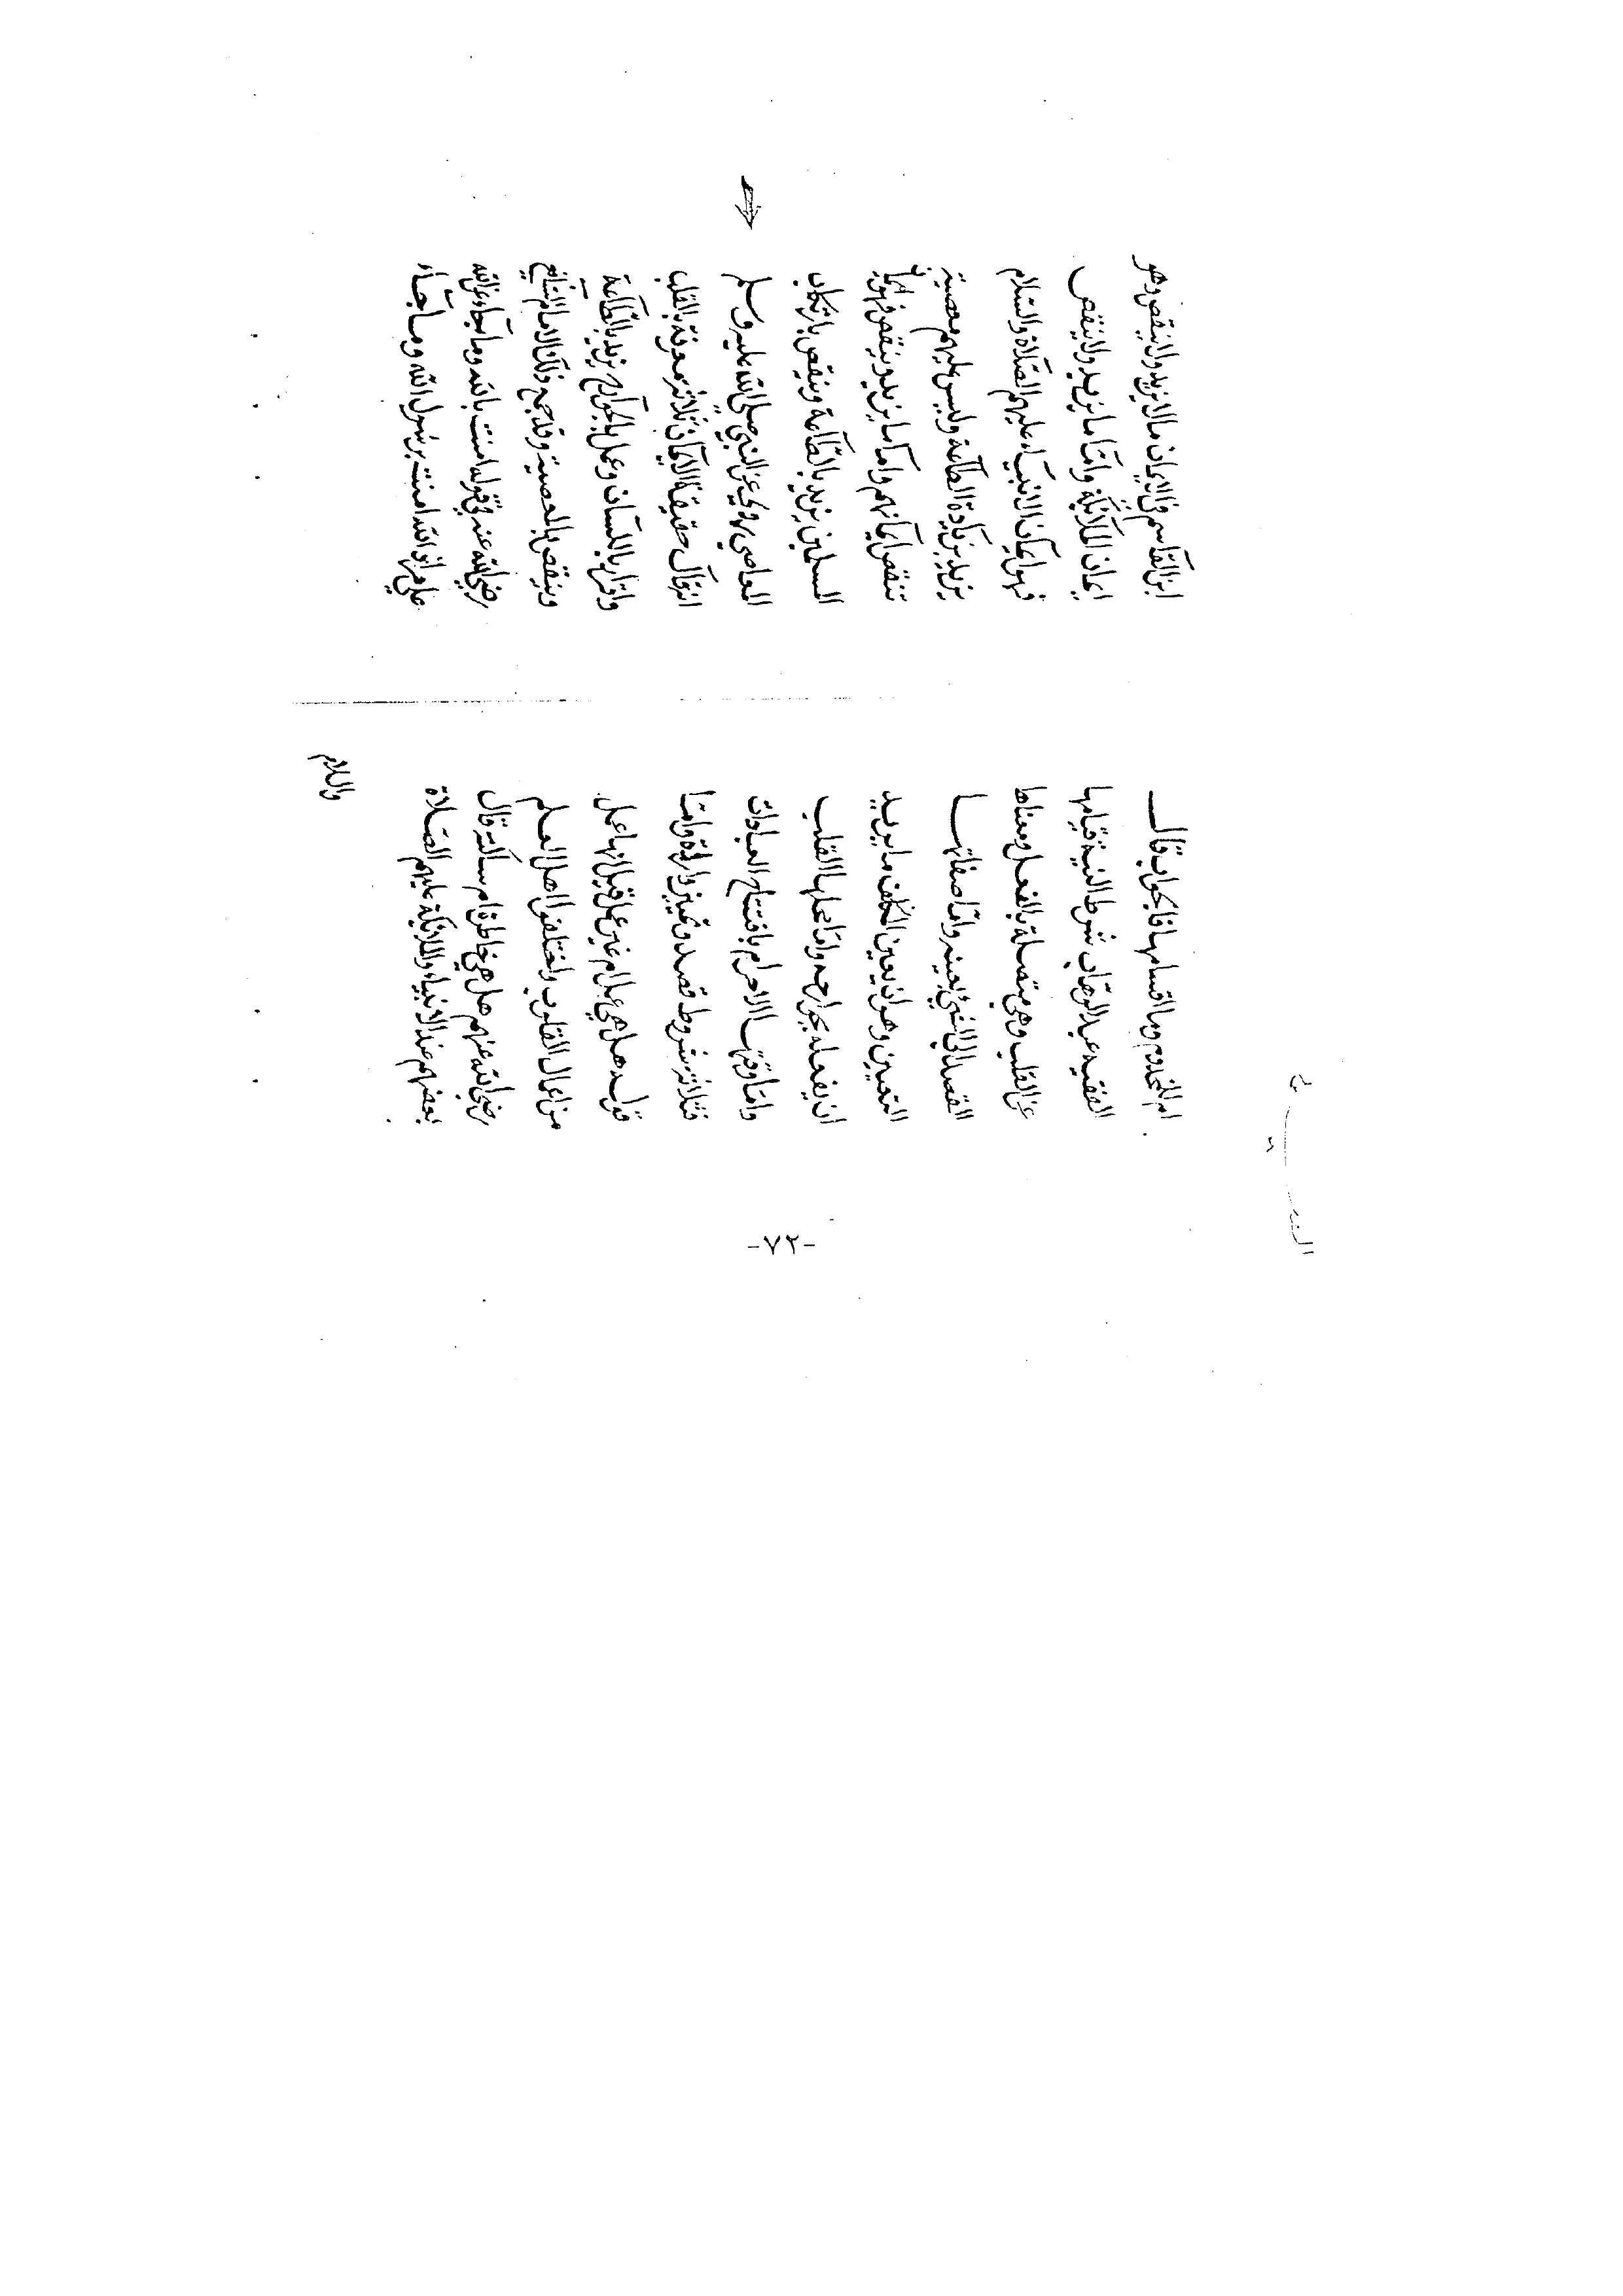 ام للخدوم وما اقسامها فالجواب قال
الفقيه عبد الوهاب شرط النية قيامها
عن القلب وهي متصلة بالفعل ومعناها
القصد الى الشيئ بعينه واما صفاتها
التعيين وهو ان يعين المكلف ما يريد
ان يفعله بجوارحه واما محلها القلب
واما وقتها الاحرام بافتتاح العبادات
فثلاثة شروط قصد وتمييز وارادة واما
قوله هل هي عمل ام غير عمل قيل انها عمل
من اعمال القلوب واختلفوا اهل العلم
رضي الله عنهم هل هي خاطرة ام ساكنة قال
بعضهم عند الانبياء والملائكة عليهم الصلاة
والسلام
ابن القاسم في الايمان ما لا يزيد ولا ينقص وهو
ايمان الملائكة واما ما يزيد ولا ينقص
فهو ايمان الانبياء عليهم الصلاة والسلام
يزيد بزيادة الطاعة وليس عليهم معصية
تنقص ايمانهم واما ما يزيد وينقص فهو ايمان
المسلمين يزيد بالطاعة وينقص بارتكاب
المعاصي روي عن النبي صلى الله عليه وسلم
انه قال حقيقة الايمان ثلاثة معرفة بالقلب
واقرار باللسان وعمل بالجوارح يزيد بالطاعة
وينقص بالمعصية وقد جمع ذلك الامام الشافعي
رضي الله عنه في قوله امنت بالله وما جاء عن الله
على مراد الله امنت برسول الله وما جاء
-٧٢-